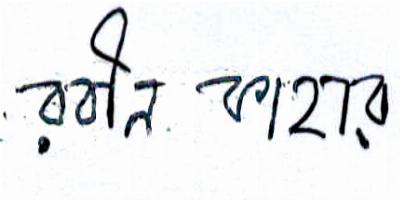 রবীন কাহার